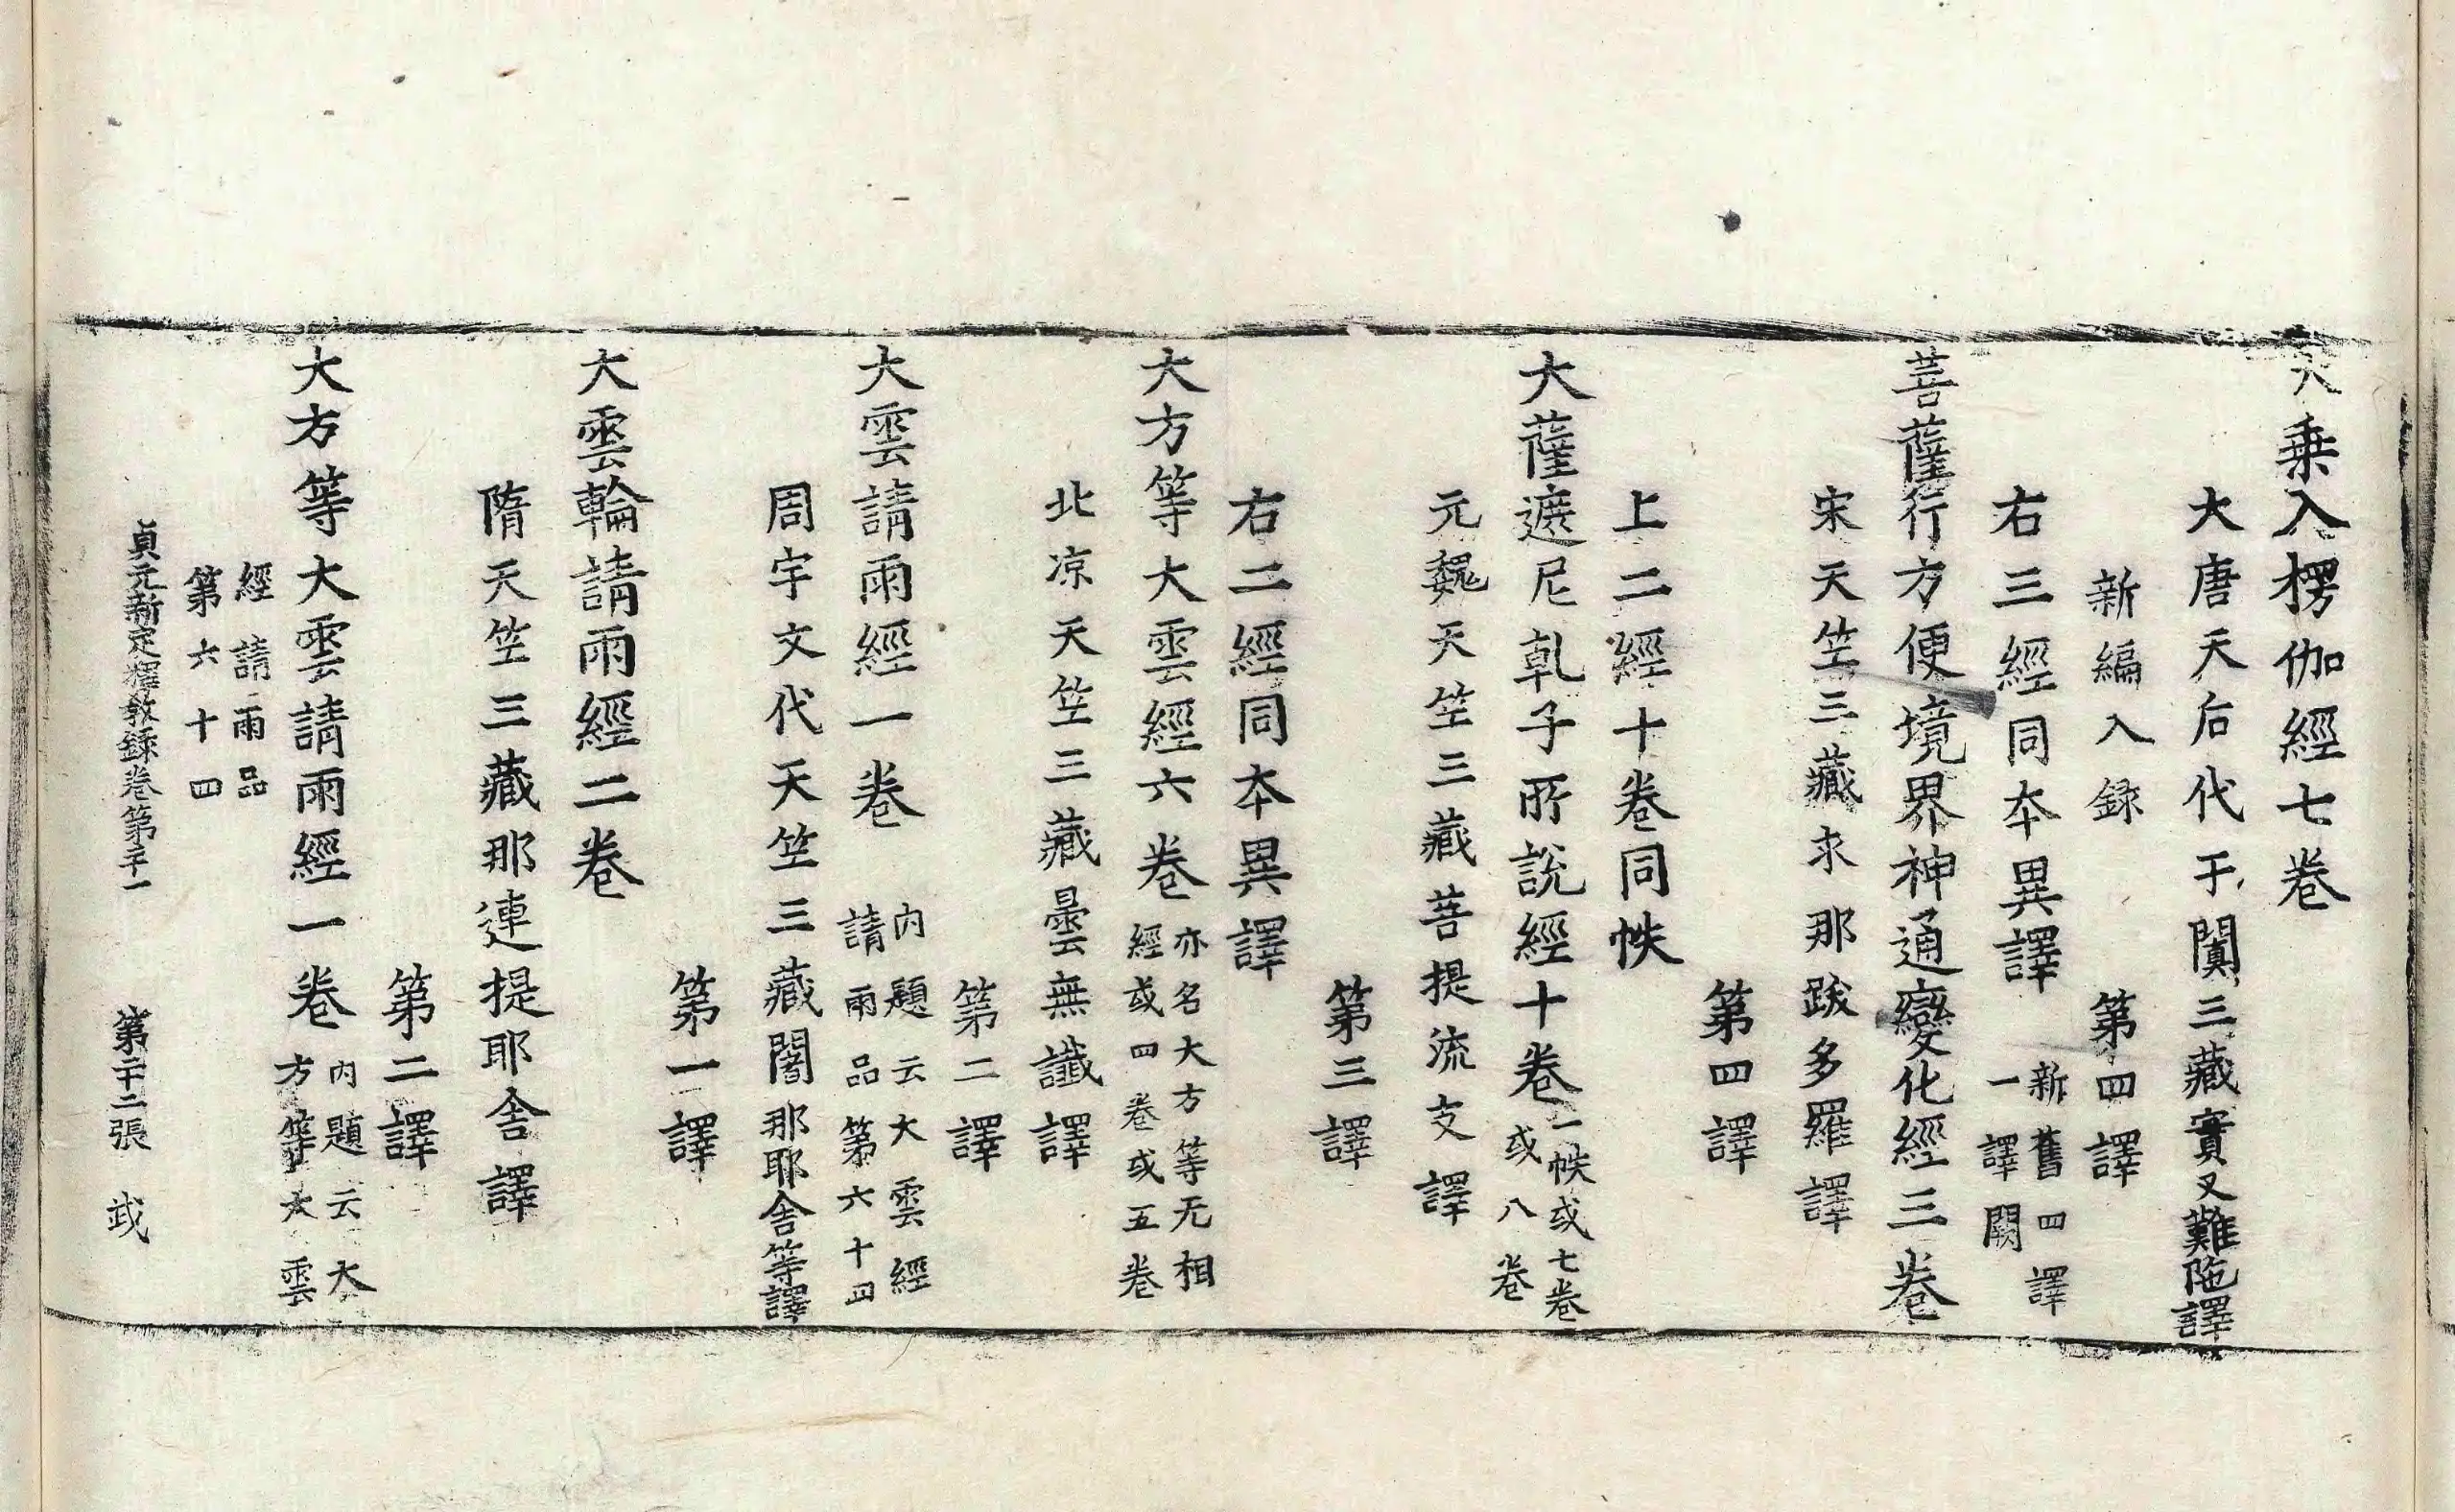 大乗入楞伽經七卷
大唐天后代于闐三藏實叉難陁譯
新編入録 第四譯
右三經同本異譯 新舊四譯
一譯闕
菩薩行方便境界神通變化經三卷
宋天竺三藏求那跋多羅譯
第四譯
上二經十卷同帙
大薩遮尼乹子所說經十卷 一帙或七卷
或八卷
元魏天竺三藏菩提流支譯
第三譯
右二經同本異譯
大方等大雲經六卷 亦名大方等无相
經或四卷或五卷
北凉天竺三藏曇無讖譯
第二譯
大雲請雨經一卷 內題云大雲經
請雨品第六十四
周宇文代天竺三藏闍那耶舍等譯
第一譯
大雲輪請雨經二卷
隋天竺三藏那連提耶舍譯
第二譯
大方等大雲請雨經一卷 內題云大
方等大雲
經請雨品
第六十四
貞元新定釋教錄卷第二十一 第二十二張 武